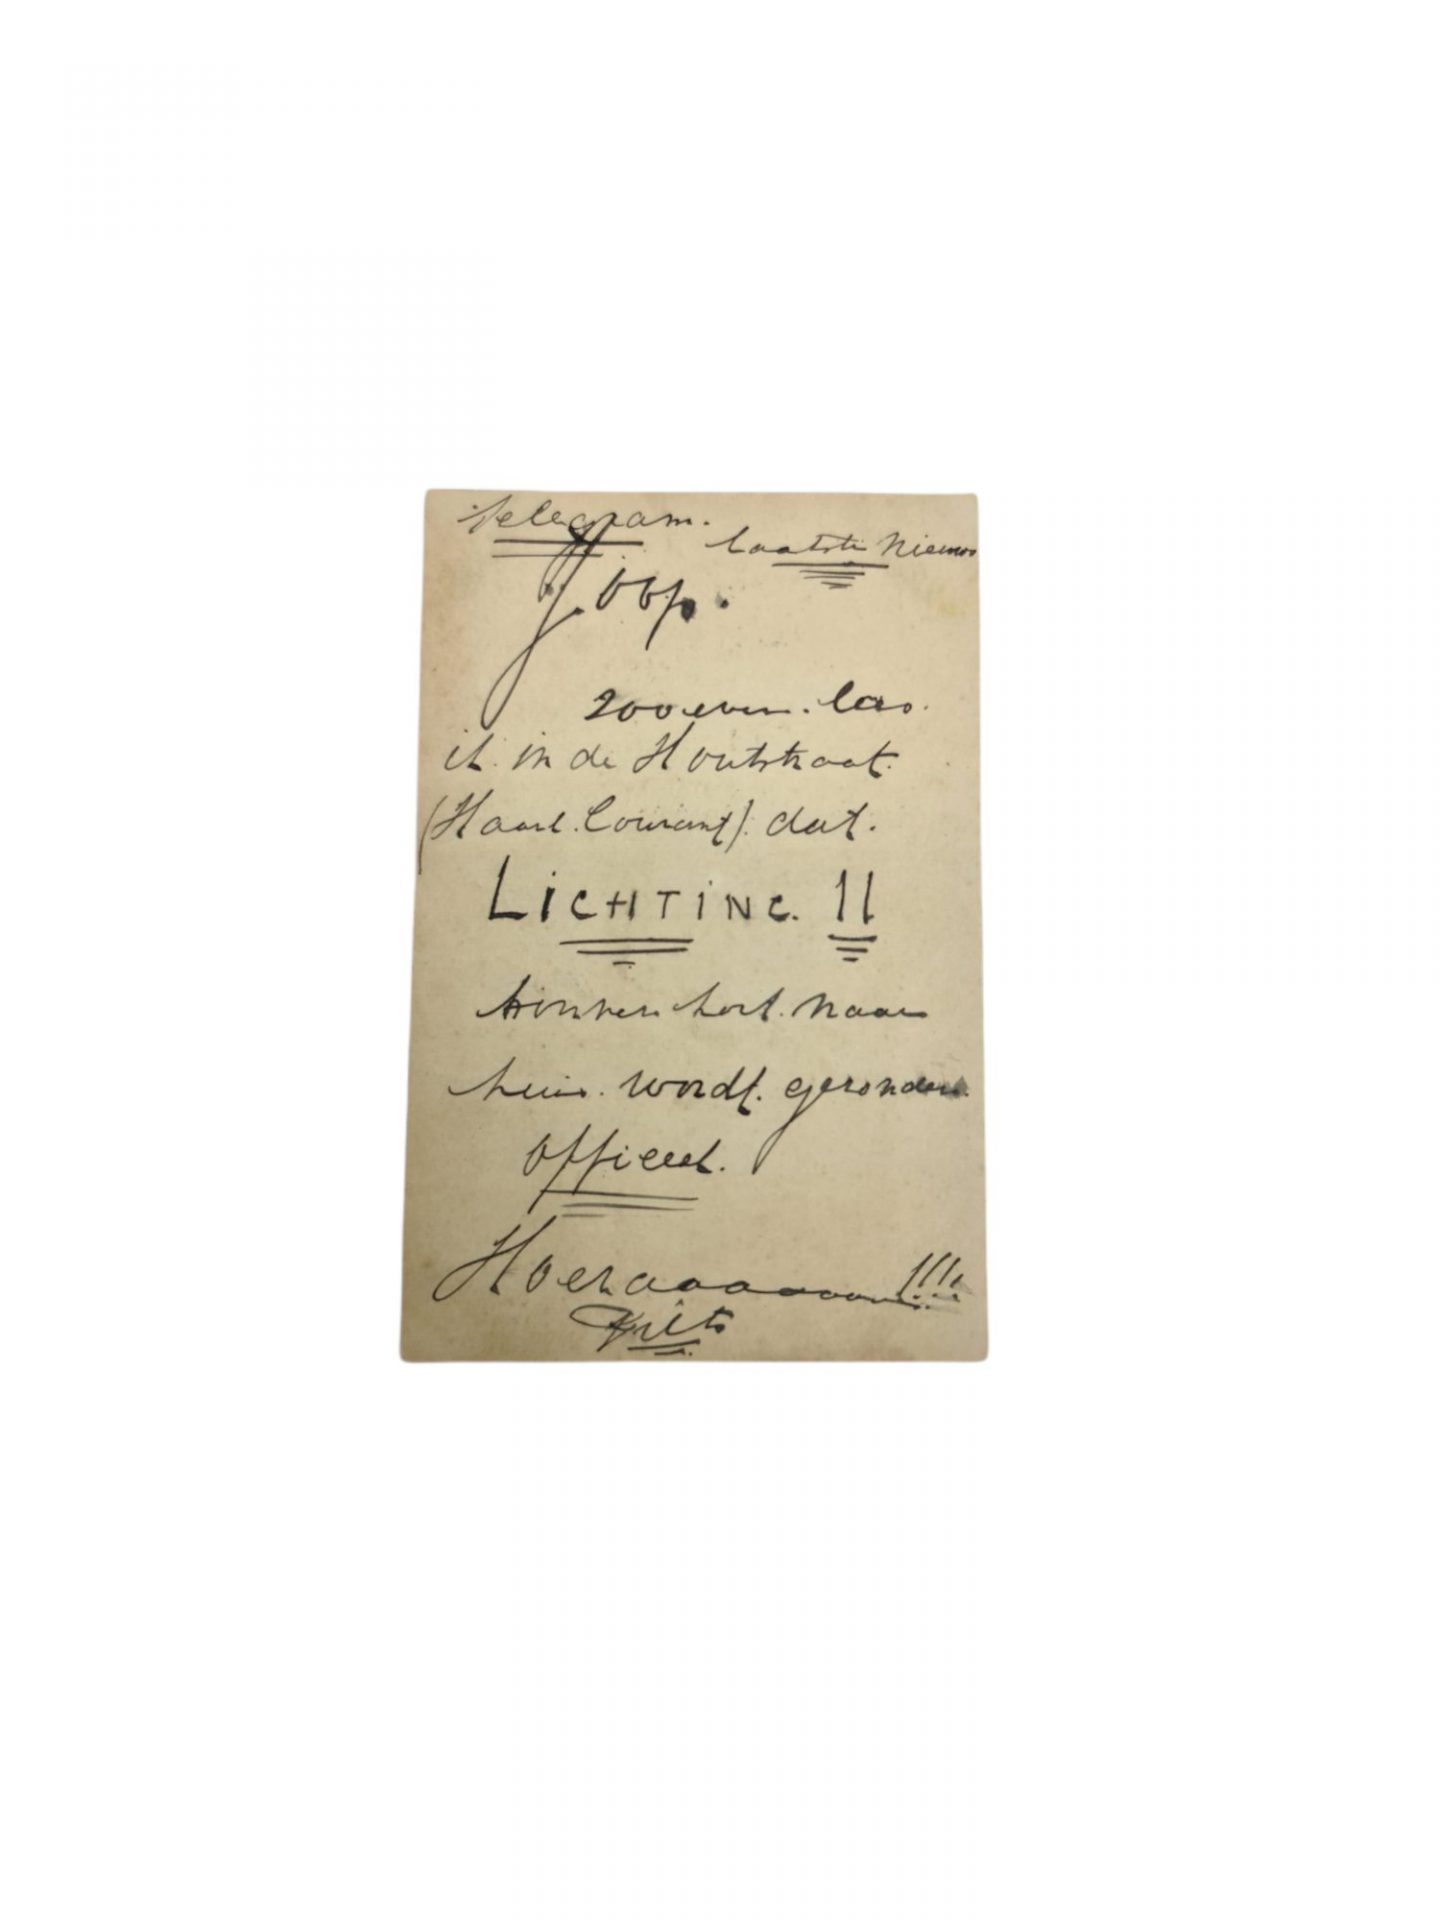 Telegram.
Laatste Nieuws
Joop.
zooeven. las.
ik in de Houtstraat.
(Haarl. Courant). dat.
LICHTING. 11
binnen kort. naar
huis. wordt. gezonden.
Officieel.
Hoeraaaaaaaaa!!!!